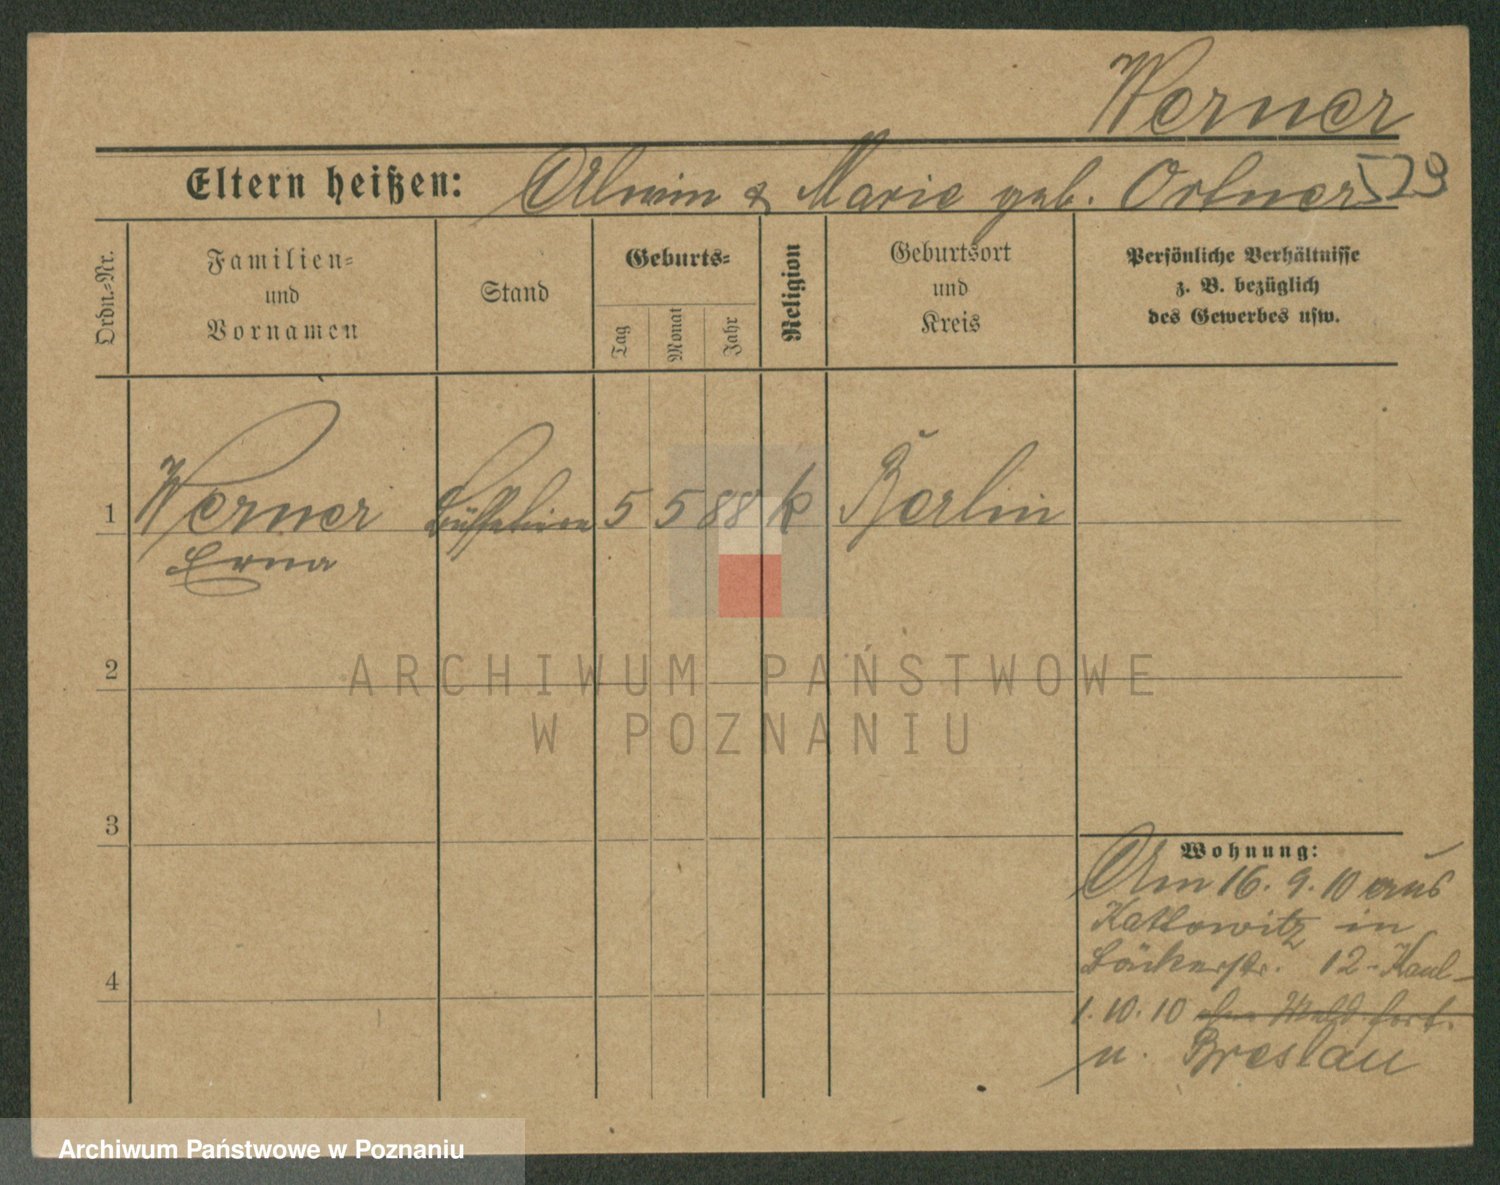 Werner
Eltern heißen: Alwin & Marie geb. Ortner 529
Ordn.-Nr.
Familien-
und
Vornamen
Stand
Geburts-
Tag
Monat
Jahr
Religion
Geburtsort
und
Kreis
Persönliche Verhältnisse
z. B. bezüglich
des Gewerbes usw.
1 Werner 5 5 88 k Berlin
Erna
2
3
4
Wohnung:
Am 16. 9. 10 aus
Kattowitz in
Bäckerstr. 12-
1. 10. 10 fort.
n. Breslau
ARCHIWUM PAŃSTWOWE
W POZNANIU
Archiwum Państwowe w Poznaniu